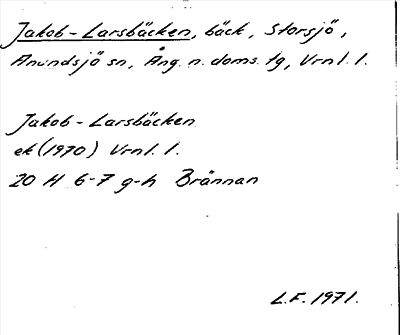 Jakob-Larsbäcken, bäck, Storsjö,
Anundsjö sn, Ång. n. doms. tg, Vrnl. l.
Jakob-Larsbäcken
ek (1970) Vrnl. l.
20 H 6-7 g-h Brännan
L.F. 1971.